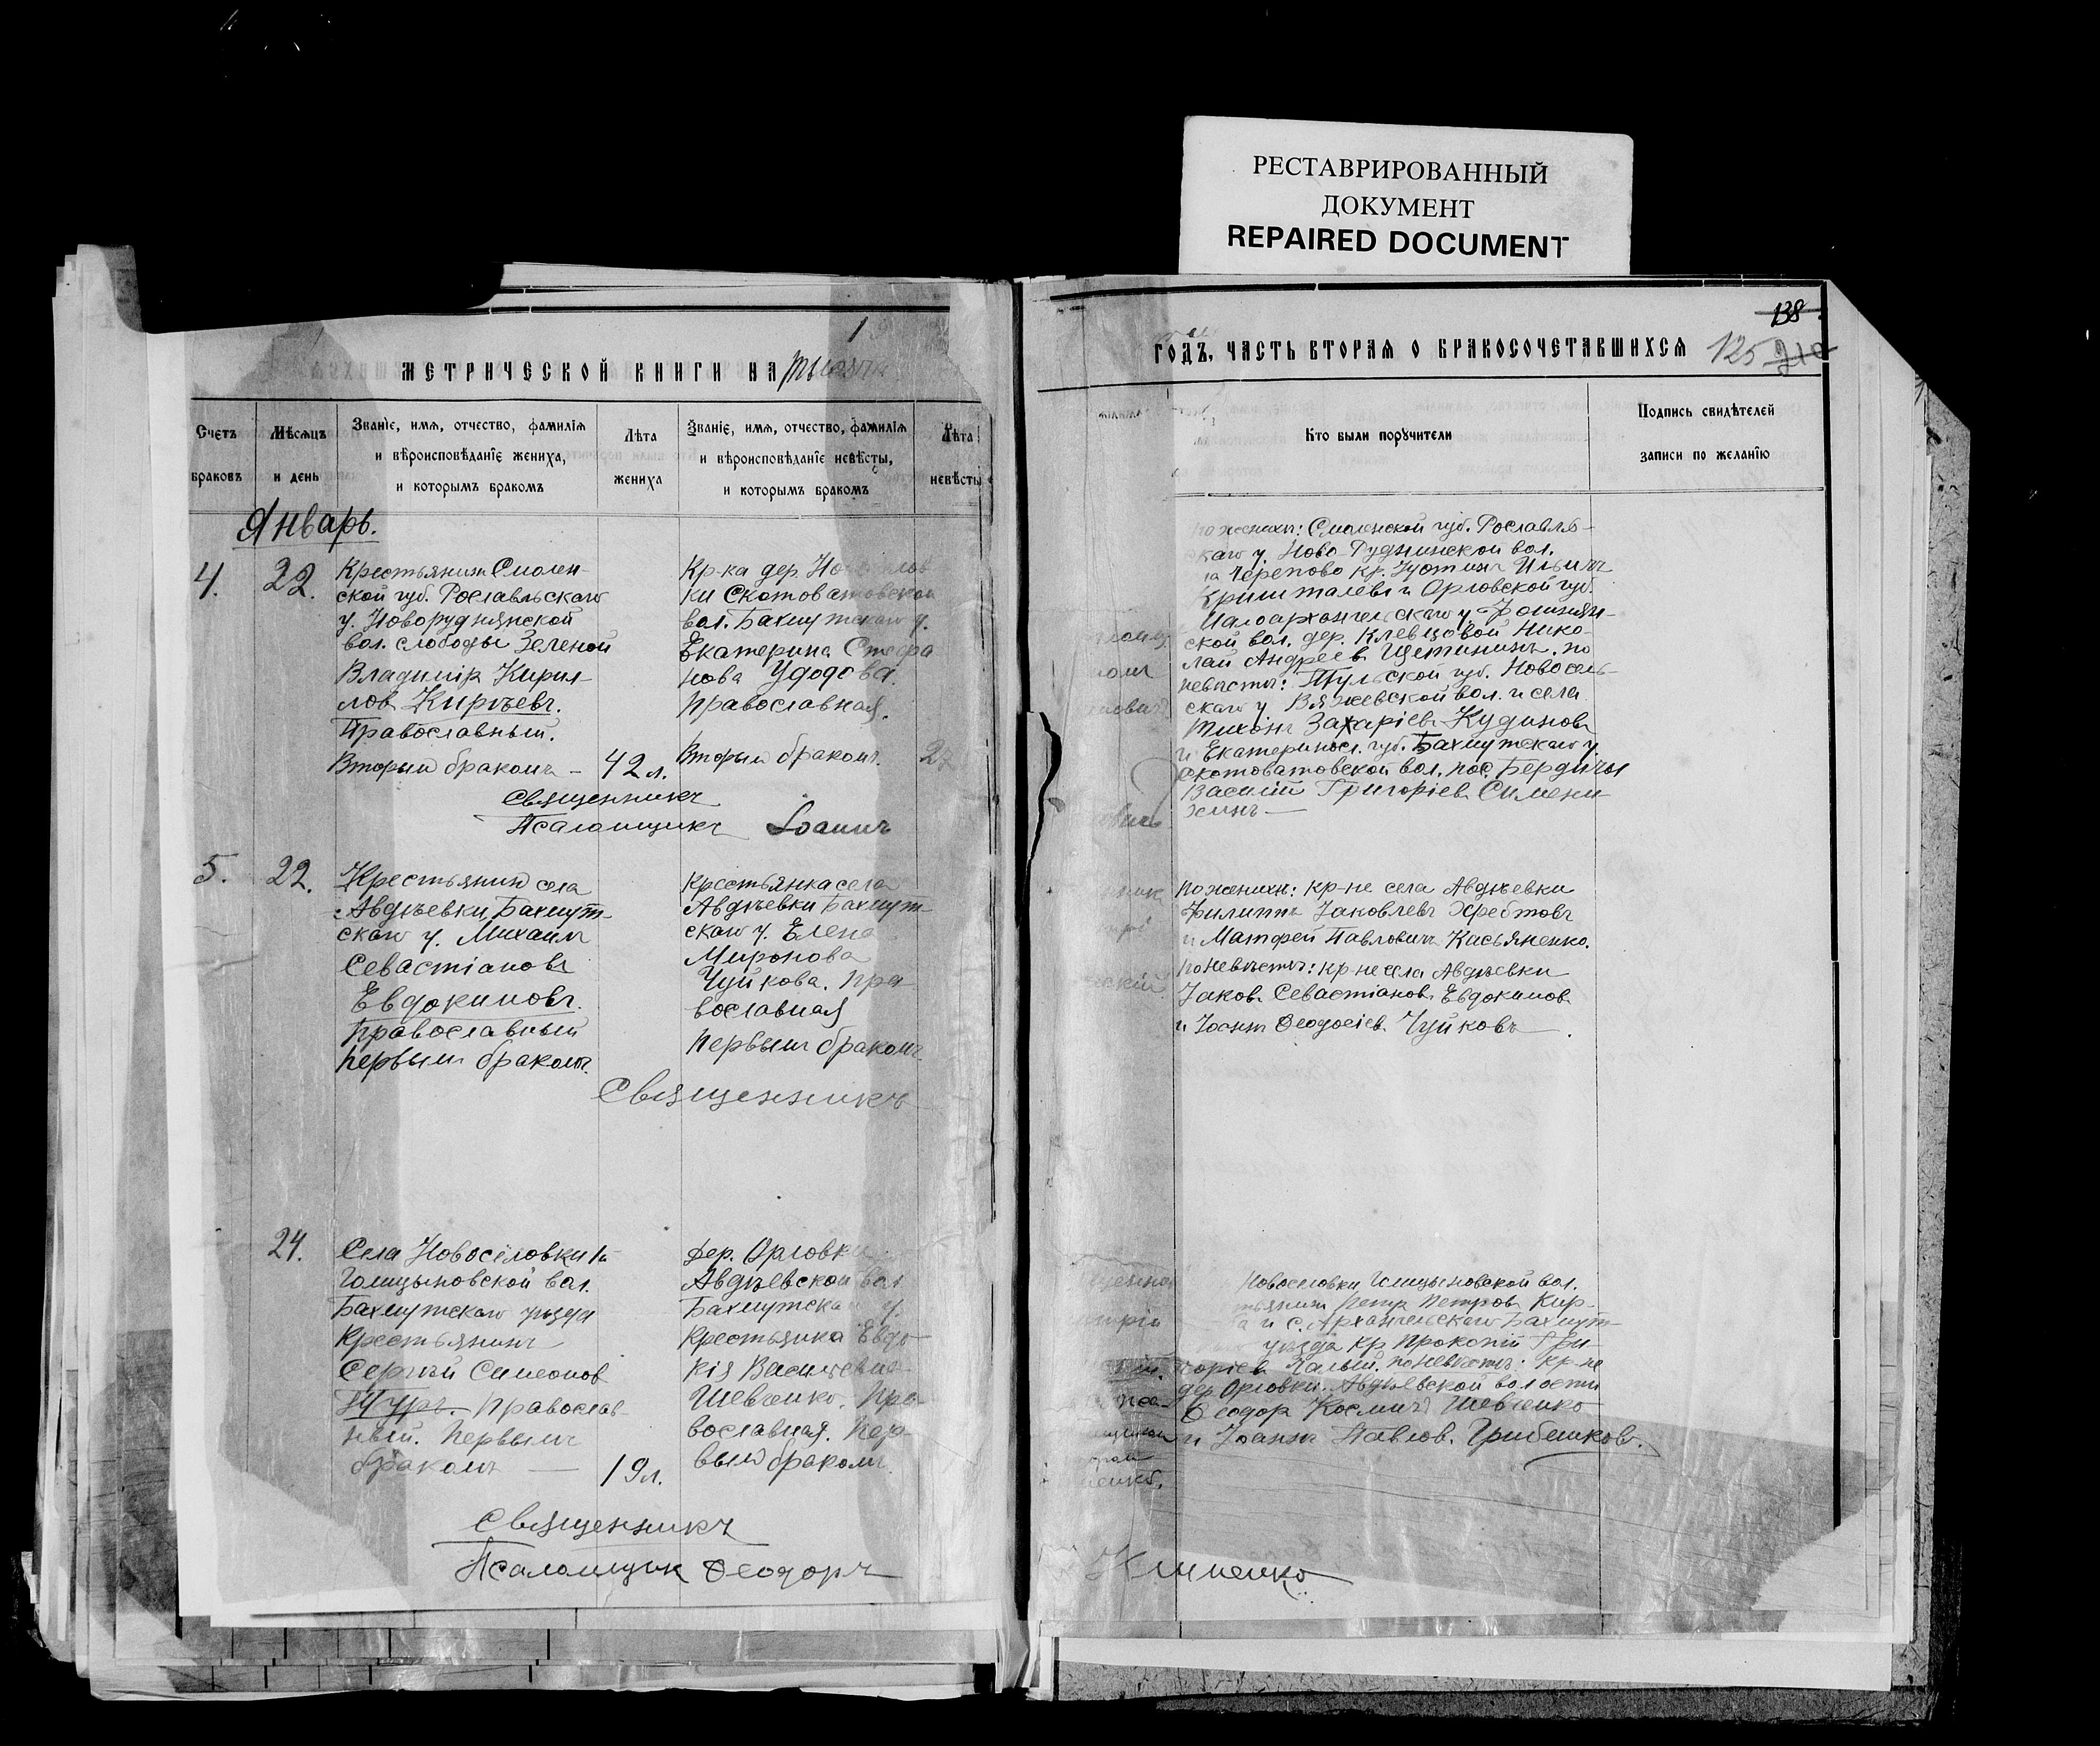 РЕСТАВРИРОВАННЫЙ
ДОКУМЕНТ
REPAIRED DOCUMENT
МЕТРИЧЕСКОЙ КНИГИ НА
Счетъ браковъ
Мѣсяцъ и день
Званіе, имя, отчество, фамилія
и вѣроисповѣданіе жениха,
и которымъ бракомъ
Лѣта жениха
Званіе, имя, отчество, фамилія
и вѣроисповѣданіе невѣсты,
и которымъ бракомъ
Лѣта невѣсты
Январь.
4.
22.
Крестьянинъ Смолен-
ской губ. Рославльскаго
у. Новоруднянской
вол. слободы Зеленой
Владиміръ Кирил-
ловъ Кирѣевъ.
Православный.
Вторым бракомъ –
42 л.
Кр-ка дер.
ки Скотоватовской
вол. Бахмутскаго у.
Екатерина Стефа
нова Удодова.
Православная.
Вторым бракомъ.
Священникъ
Псаломщикъ Іоаннъ
5.
22.
Крестьянин села
Авдѣевки Бахмут-
скаго у. Михаилъ
Севастіановъ
Евдокимовъ.
Православный
первым бракомъ.
Крестьянка села
Авдѣевки Бахмут-
скаго у. Елена
Миронова
Чуйкова. Пра
вославная
первымъ бракомъ
Священникъ
24.
Села Новосёловки 1й
Голицыновской вол.
Бахмутскаго уѣзда
Крестьянинъ
Сергѣй Симеонов
Туръ. Православ-
ный. Первымъ
бракомъ —
19 л.
дер. Орловки
Авдѣевской вол
Бахмутскаго у.
Крестьянка Евдо-
кія Васильевна
Шевченко. Пра-
вославная. Пер-
вым бракомъ.
Священникъ
Псаломщик Ѳеодоръ
138
ГОДЪ, ЧАСТЬ ВТОРАЯ О БРАКОСОЧЕТАВШИХСЯ
125
Кто были поручители
Подпись свидѣтелей
записи по желанію
по женихѣ: Смоленской губ. Рославль-
скаго у. Ново Руднинской вол.
Черепово кр. Іустинъ Ильинъ
и Орловской губ.
Малоархангельскаго у.
ской вол. дер. Клевцовой Нико-
лай Андреевъ Щетининъ. по
невѣстѣ: Тульской губ. Новосиль-
скаго у Вяжевской вол. и села
Тихонъ Захаріевъ Кудиновъ
и Екатериносл. губ. Бахмутскаго у.
Скотоватовской вол. пос. Бердичи
Василій Григоріевъ Симени-
хинъ —
по женихѣ: кр-не села Авдѣевки
Филиппъ Іаковлевъ Хребтовъ
и Матфей Павловичъ Касьяненко.
по невѣстѣ: кр-не села Авдѣевки
Іаков. Севастіанов. Евдокимов
и Іоаннъ Ѳеодосіев. Чуйковъ
Новоселовки Голицыновской вол.
Петръ Петровъ Кир-
и с. Архангельскаго Бахмут-
уѣзда кр Прокопій Гри-
горіевъ по невѣстѣ: кр-не
дер Орловки. Авдѣевской волости
Ѳеодор Косминъ Шевченко
и Іоаннъ Павлов. Грибениковъ.